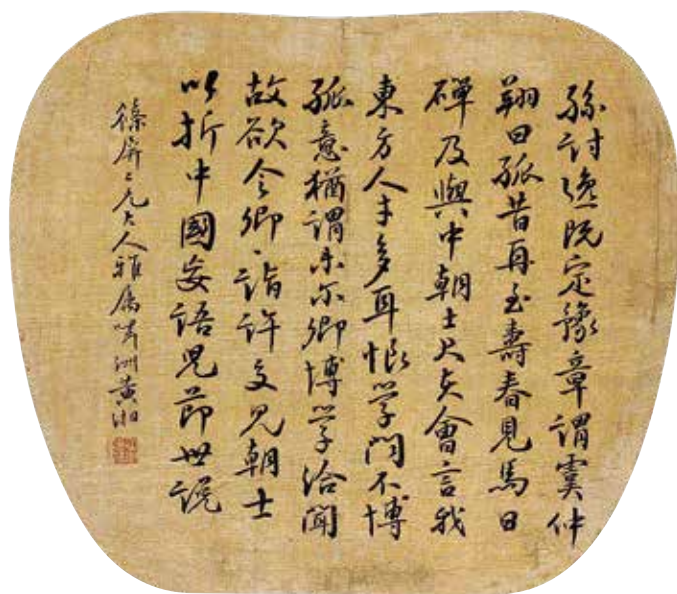 孫討逆既定豫章謂虞仲
翔曰孤昔再至壽春見馬日
磾及與中朝士大夫會言我
東方人才多耳恨学问不博
孤意猶謂未尔卿博学洽聞
故欲令卿一詣許交見朝士
以折中國妄語兒節世說
篠屏二兄大人雅属洲黄湘